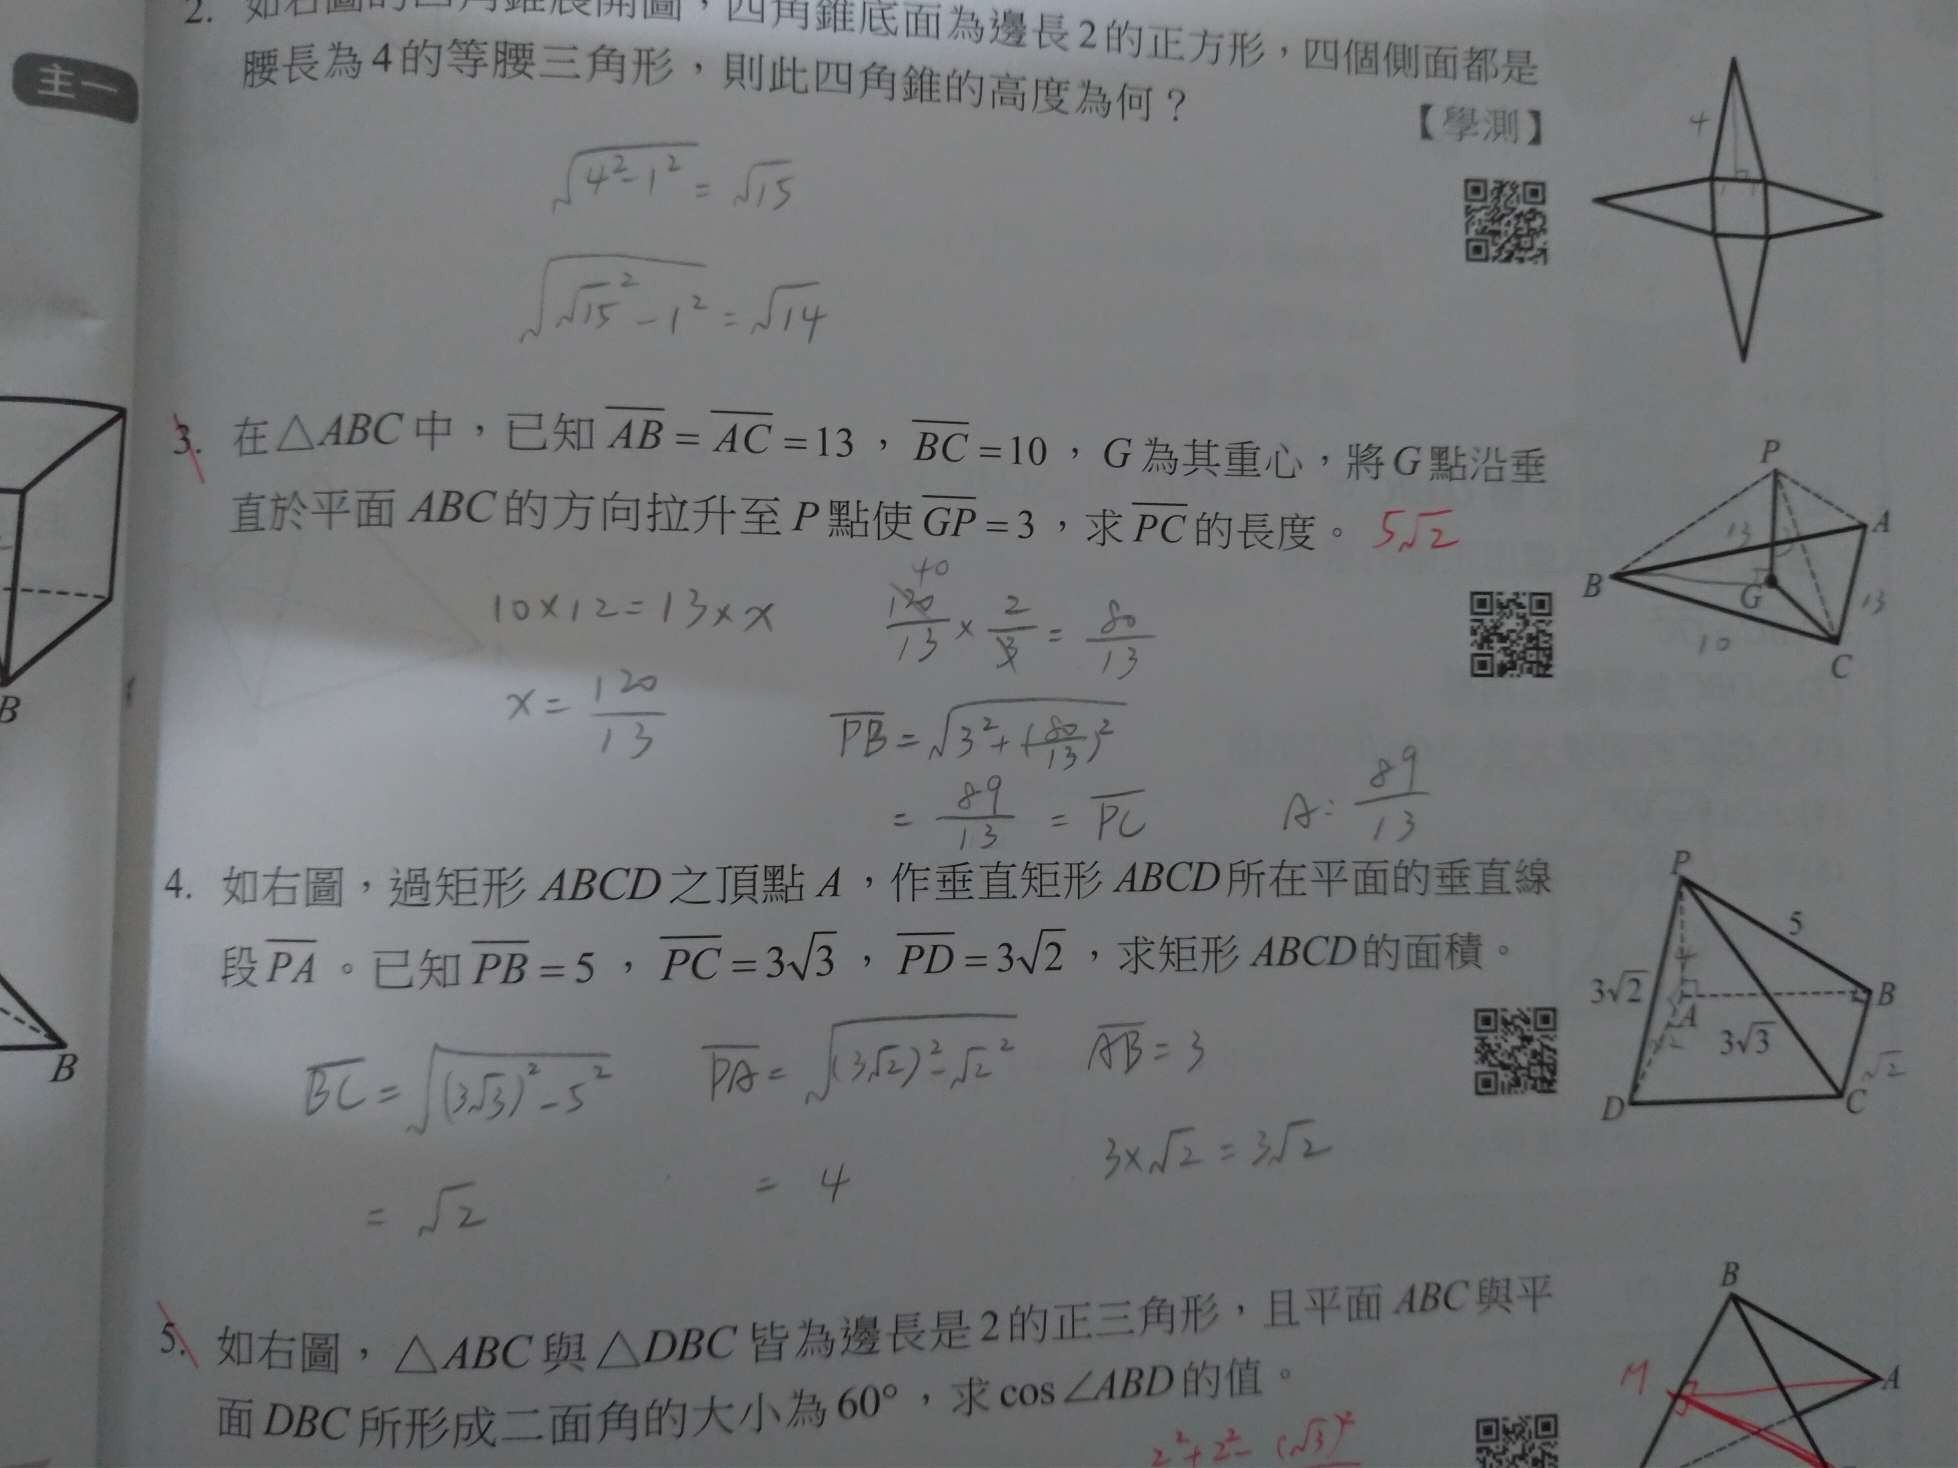 主一
2. 如右圖的四角錐展開圖，四角錐底面為邊長2的正方形，四個側面都是
腰長為4的等腰三角形，則此四角錐的高度為何？
【學測】
4
√(4²-1²) = √15
√(√15²-1²) = √14
3. 在△ABC中，已知AB=AC=13，BC=10，G為其重心，將G點沿垂
直於平面ABC的方向拉升至P點使GP=3，求PC的長度。 5√2
P
A
B
G
C
13
13
10
10×12=13×x
x=120/13
40
120/13 × 2/3 = 80/13
PB=√(3²+(80/13)²)
= 89/13 = PC
A: 89/13
4. 如右圖，過矩形ABCD之頂點A，作垂直矩形ABCD所在平面的垂直線
段PA。已知PB=5，PC=3√3，PD=3√2，求矩形ABCD的面積。
P
5
4
3√2
A
B
3√3
√2
√2
D
C
BC=√((3√3)²-5²)
= √2
PA=√((3√2)²-√2²)
= 4
AB=3
3×√2=3√2
5. 如右圖，△ABC與△DBC皆為邊長是2的正三角形，且平面ABC與平
面DBC所形成二面角的大小為60°，求cos∠ABD的值。
2²+2²-(√3)²
B
M
A
B
B